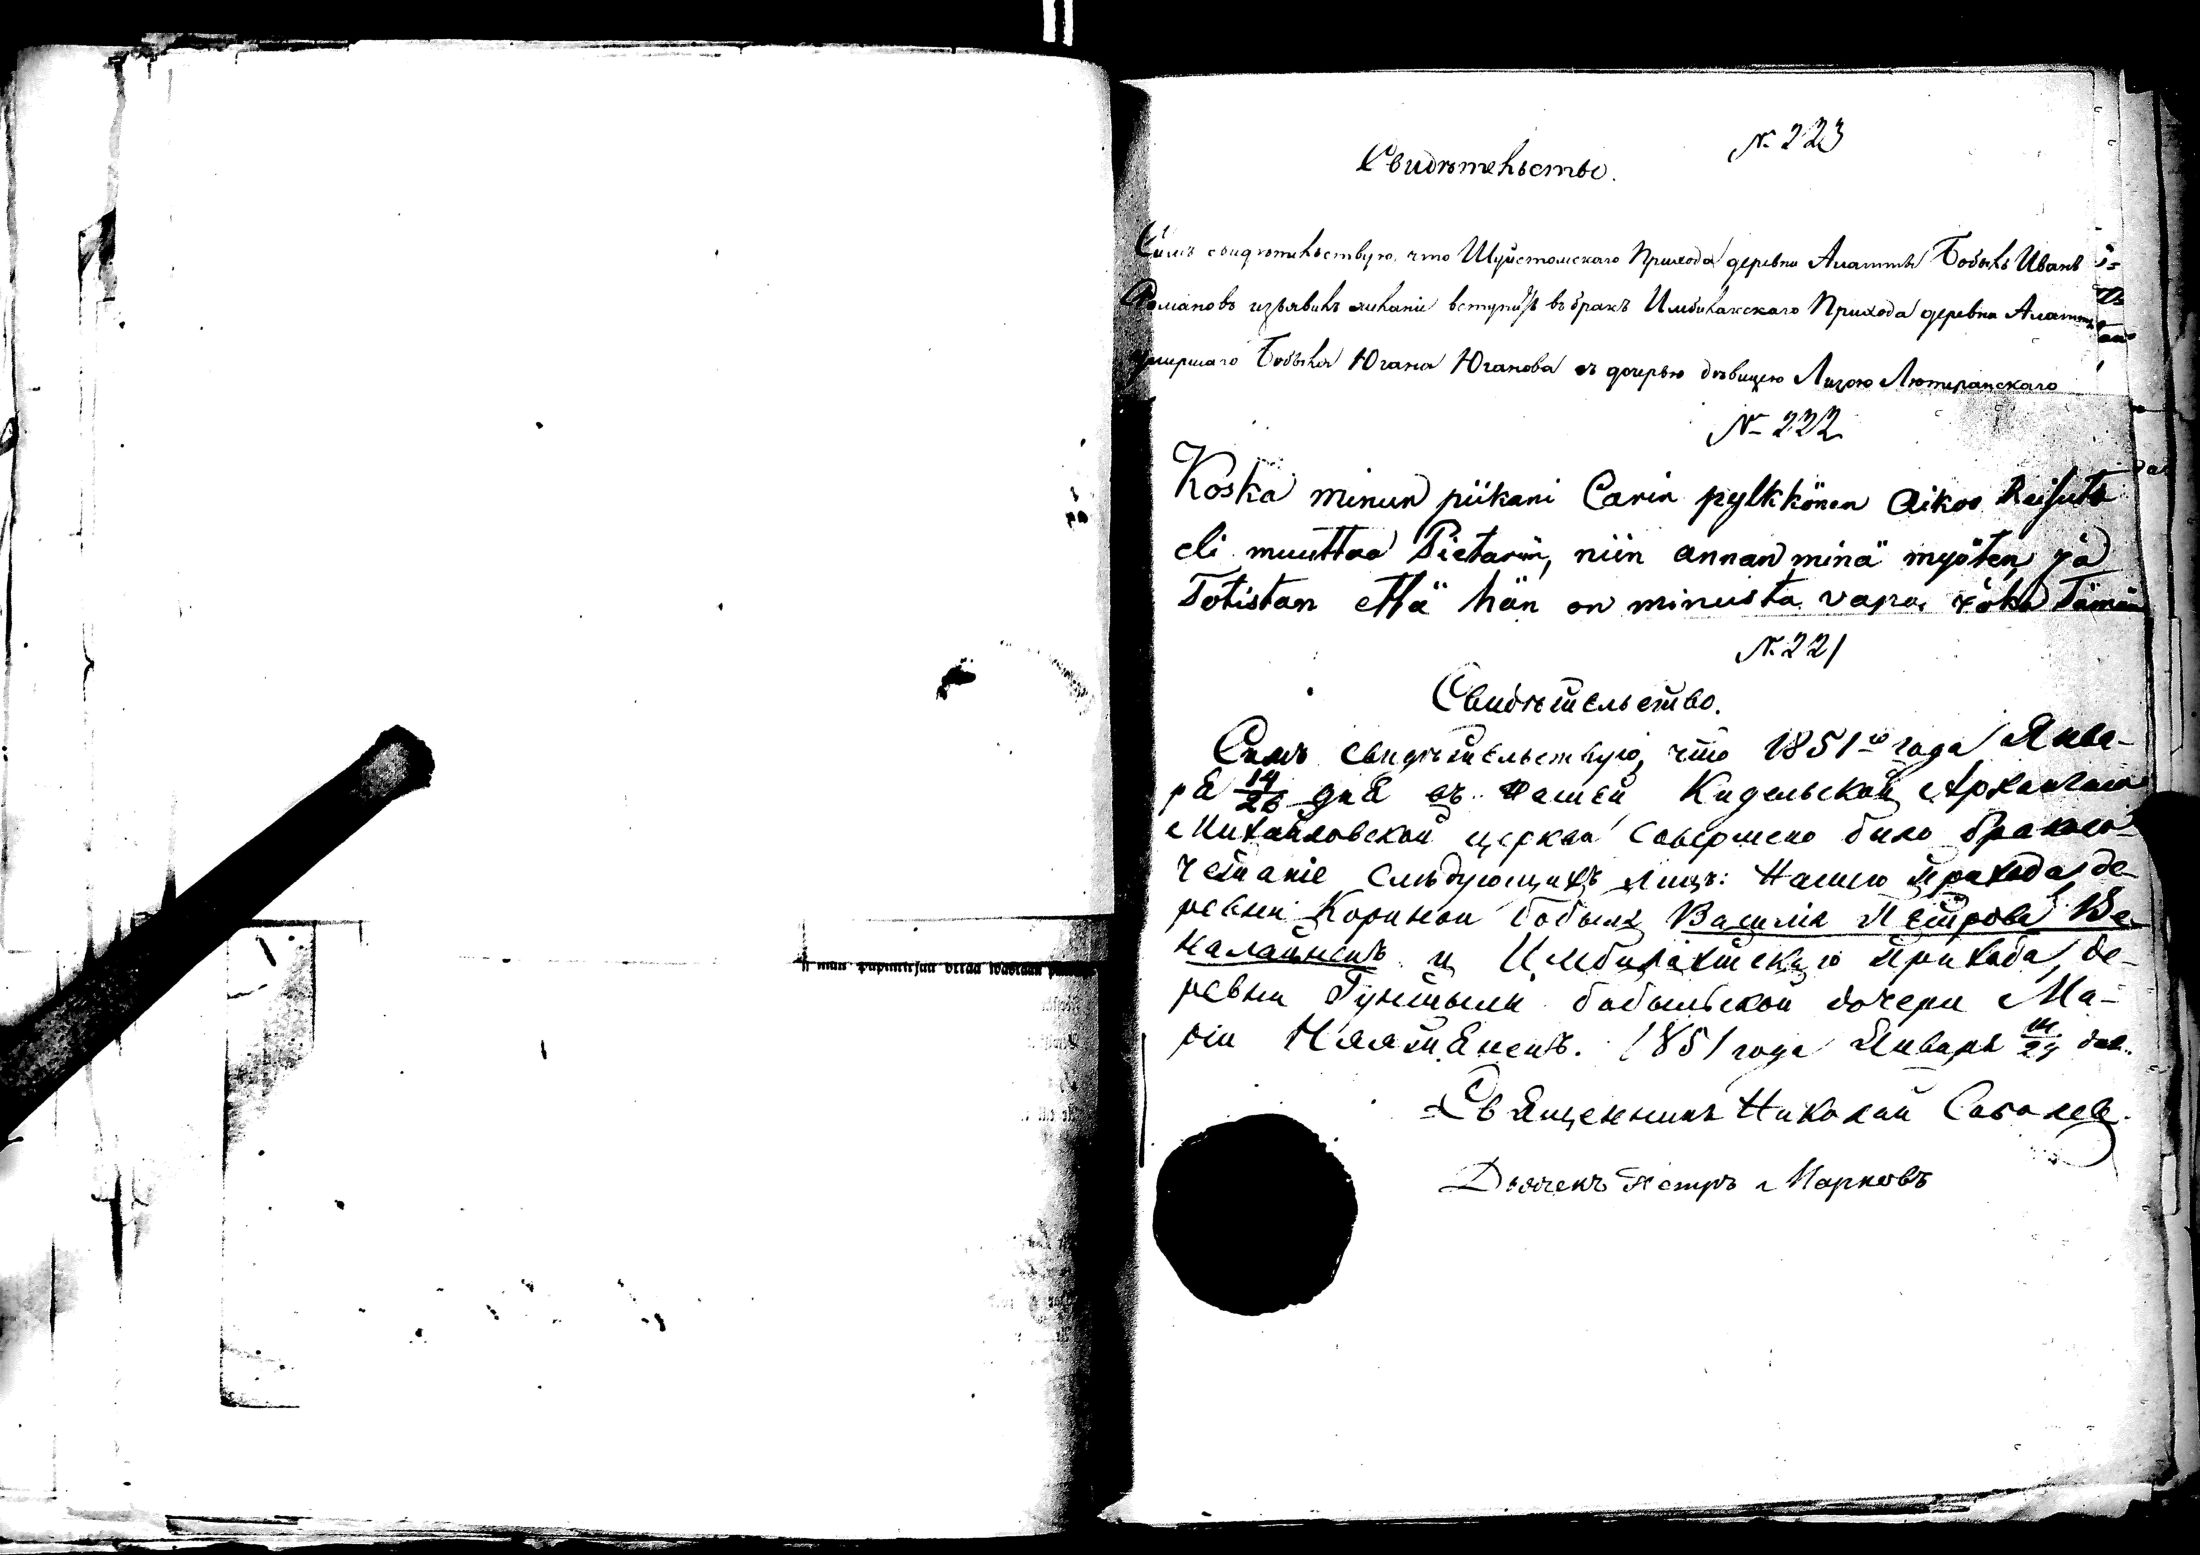 № 223
Свидѣтельство.
Симъ свидѣтельствую, что Шуйстомскаго Прихода деревни Алатты Бобыль Иванъ
Романовъ изъявилъ желаніе вступить въ бракъ Имбилакскаго Прихода деревни
умершаго Бобыля Югана Юганова съ дочерью дѣвицею Лизою Лютеранскаго
№ 222
Koska minun piikani Carin pylkkönen aikoo Reisuta
eli muuttaa Pietariin, niin annan minä myöten, ja
Totistan että hän on minusta vapa, joka Tämän
№ 221
Свидѣтельство.
Симъ свидѣтельствую, что 1851го года Янва-
ря 14/26 дня въ нашей Кидельской Архангело
Михайловской церкви совершено было бракосо-
четаніе слѣдующихъ лицъ: Нашего прихода де-
ревни бобыля Василія Петрова Ве-
налайненъ и Имбилахтскаго прихода, де-
ревни бобыльской дочери Ма-
ріи 1851 года Января дня.
Священникъ Николай
Дьячекъ Петръ Марковъ